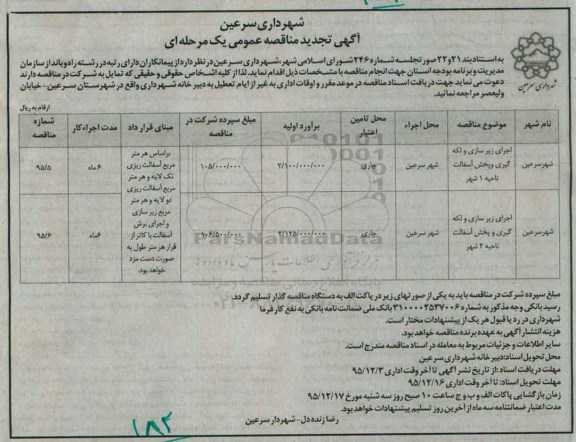 شهرداری سرعین
آگهی تجدید مناقصه عمومی یک مرحله ای
شهرداری سرعین
به استناد بند ۲۱و۲۲ صورتجلسه شماره ۲۴۶ شورای اسلامی شهر، شهرداری سرعین در نظر دارد از پیمانکاران دارای رتبه در رشته راه و باند از سازمان
مدیریت و برنامه بودجه استان جهت انجام مناقصه با مشخصات ذیل اقدام نماید. لذا از کلیه اشخاص حقوقی و حقیقی که تمایل به شرکت در مناقصه دارند
دعوت می نماید جهت دریافت اسناد مناقصه در موعد مقرر و اوقات اداری به غیر از ایام تعطیل به دبیر خانه شهرداری واقع در شهرستان سرعین- خیابان
ولیعصر مراجعه نمایند.
ارقام به ریال
نام شهر | موضوع مناقصه | محل اجراء | محل تامین اعتبار | برآورد اولیه | مبلغ سپرده شرکت در مناقصه | مبنای قرار داد | مدت اجراء کار | شماره مناقصه
شهر سرعین | اجرای زیر سازی و لکه گیری و پخش آسفالت ناحیه ۱ شهر | شهر سرعین | جاری | ۲/۱۰۰/۰۰۰/۰۰۰ | ۱۰۵/۰۰۰/۰۰۰ | ۶ ماه | ۹۵/۵
شهر سرعین | اجرای زیر سازی و لکه گیری و پخش آسفالت ناحیه ۲ شهر | شهر سرعین | جاری | ۲/۱۲۵/۰۰۰/۰۰۰ | ۱۰۶/۵۰۰/۰۰۰ | ۶ماه | ۹۵/۶
براساس هر متر
مربع آسفالت ریزی
تک لایه و هر متر
مربع آسفالت ریزی
دو لایه و هر متر
مربع زیر سازی
و اجرای برش
آسفالت با کاتر از
قرار هر متر طول به
صورت دست مزد
خواهد بود.
ParsNamadData
مبلغ سپرده شرکت در مناقصه باید به یکی از صورتهای زیر در پاکت الف به دستگاه مناقصه گذار تسلیم گردد.
رسید بانکی وجه مذکور به شماره ۳۱۰۰۰۰۲۵۳۷۰۰۶ بانک ملی ضمانت نامه بانکی به نفع کارفرما
شهرداری در رد یا قبول هر یک از پیشنهادات مختار است.
هزینه انتشار آگهی به عهده برنده مناقصه خواهد بود.
سایر اطلاعات و جزئیات مربوط به معامله در اسناد مناقصه مندرج است.
محل تحویل اسناد: دبیر خانه شهرداری سرعین
مهلت دریافت اسناد :از تاریخ نشر آگهی تا آخر وقت اداری ۹۵/۱۲/۳
مهلت تحویل اسناد: تا آخر وقت اداری ۹۵/۱۲/۱۶
زمان بازگشایی پاکات الف و ب و ج ساعت ۱۰ صبح روز سه شنبه مورخ ۹۵/۱۲/۱۷
مدت اعتبار ضمانتنامه سه ماه از آخرین روز تسلیم پیشنهادات خواهد بود.
رضا زنده دل- شهردار سرعین
۱۸۲